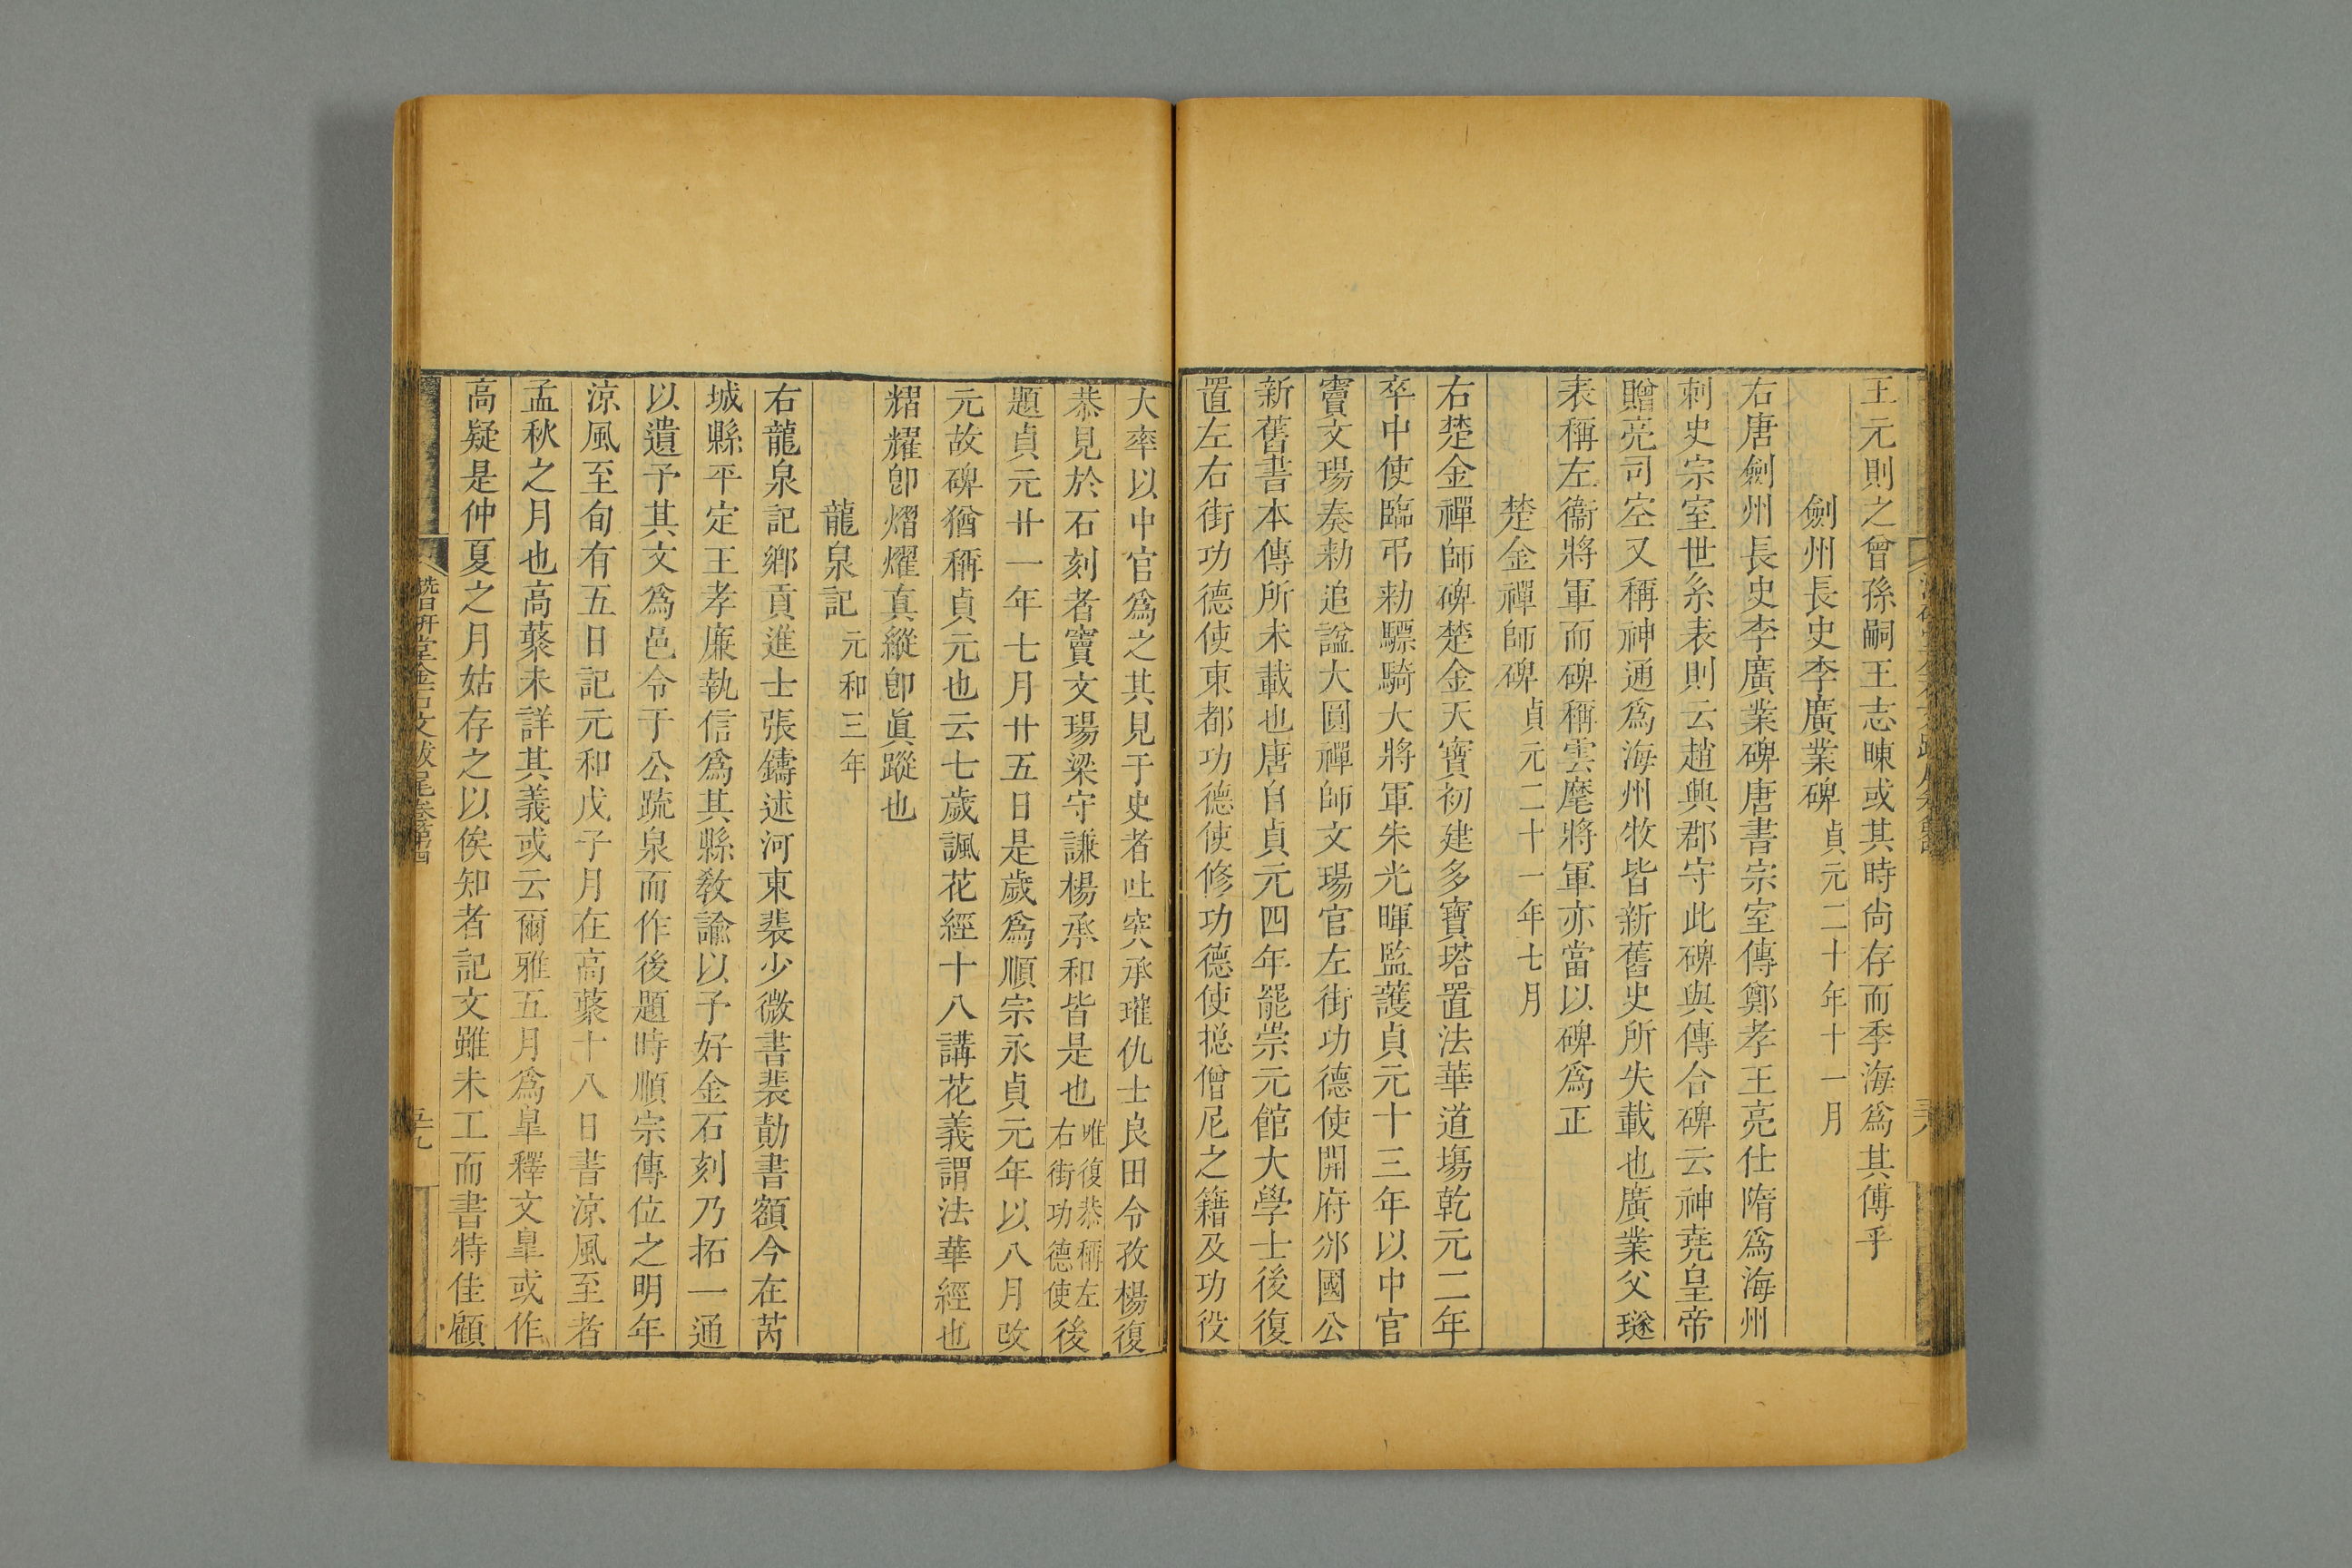 王元則之曾孫嗣王志暕或其時尚存而季海爲其傅乎
劍州長史李廣業碑 貞元二十年十一月
右唐劍州長史李廣業碑唐書宗室傳鄭孝王亮仕隋爲海州
刺史宗室世系表則云趙興郡守此碑與傳合碑云神堯皇帝
贈亮司空又稱神通爲海州牧皆新舊史所失載也廣業父璲
表稱左衞將軍而碑稱雲麾將軍亦當以碑爲正
楚金禪師碑 貞元二十一年七月
右楚金禪師碑楚金天寶初建多寶塔置法華道場乾元二年
卒中使臨弔勅驃騎大將軍朱光暉監護貞元十三年以中官
竇文瑒奏勅追諡大圓禪師文瑒官左街功德使開府邠國公
新舊書本傳所未載也唐自貞元四年罷崇元館大學士後復
置左右街功德使東都功德使修功德使揔僧尼之籍及功役
大率以中官爲之其見于史者吐突承璀仇士良田令孜楊復
恭見於石刻者竇文瑒梁守謙楊承和皆是也 唯復恭稱左右街功德使 後
題貞元廿一年七月廿五日是歲爲順宗永貞元年以八月改
元故碑猶稱貞元也云七歲諷花經十八講花義謂法華經也
熠耀卽熠燿真縱卽眞蹤也
龍泉記 元和三年
右龍泉記鄉貢進士張鑄述河東裴少微書裴勣書額今在芮
城縣平定王孝廉執信爲其縣敎諭以予好金石刻乃拓一通
以遺予其文爲邑令于公䟽泉而作後題時順宗傳位之明年
涼風至旬有五日記元和戊子月在高蕟十八日書涼風至者
孟秋之月也高蕟未詳其義或云爾雅五月爲皐釋文皐或作
高疑是仲夏之月姑存之以俟知者記文雖未工而書特佳顧
潛研堂金石文跋尾卷第四
五九